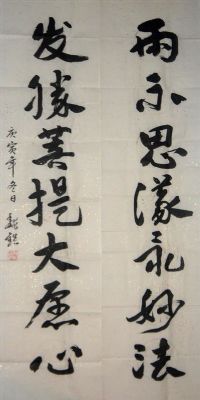 雨不思議妙法
发勝菩提大愿心
庚寅年冬日